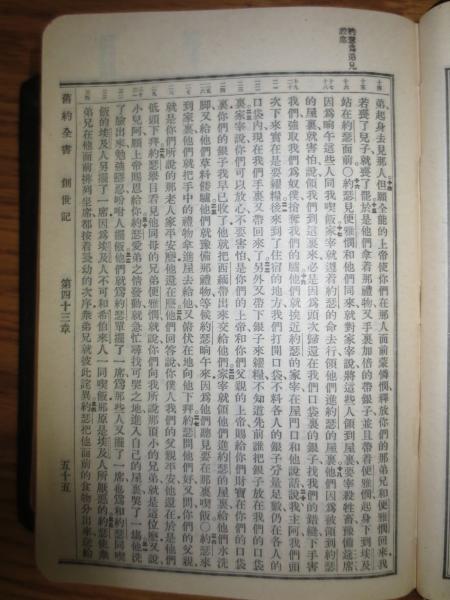 約瑟爲弟兄
設席
弟起身去見那人但願全能的上帝使你們在那人面前蒙憐憫釋放你們的那弟兄和便雅憫回來我
若喪了兒子就喪了罷於是他們拿着那禮物又手裏加倍的帶銀子並且帶着便雅憫起身下到埃及
站在約瑟面前○約瑟見便雅憫和他們同來就對家宰說將這些人領到屋裏要宰殺牲畜豫備筵席
因爲晌午這些人同我喫飯家宰就遵着約瑟的命去行領他們進約瑟的屋裏他們因爲被領到約瑟
的屋裏就害怕說領我們到這裏來必是因爲頭次歸還在我們口袋裏的銀子找我們的錯縫下手害
我們強取我們爲奴僕搶奪我們的驢他們就挨近約瑟的家宰在屋門口和他說話說我主阿我們頭
次下來實在是要糴糧後來到了住宿的地方我們打開口袋不料各人的銀子分量足數仍在各人的
口袋內現在我們手裏又帶回來了另外又帶下銀子來糴糧不知道先前誰把銀子放在我們的口袋
裏家宰說你們可以放心不要害怕是你們的上帝和你們父親的上帝賜給你們財寶在你們的口袋
裏你們的銀子我早已收了他就把西緬帶出來交給他們家宰就領他們進約瑟的屋裏給他們水洗
脚又給他們草料餧驢他們就豫備那禮物等候約瑟晌午來因爲他們聽見要在那裏喫飯○約瑟來
到家裏他們就把手中的禮物拿進屋去給他又俯伏在地向他下拜約瑟問他們好又問你們的父親
就是你們所說的那老人家平安麼他還在麼他們回答說你僕人我們的父親平安他還在於是他們
低頭下拜約瑟舉目看見他同母的兄弟便雅憫就說你們向我所說那頂小的兄弟就是這位麼又說
小兒阿願上帝賜恩給你約瑟愛弟之情發動就急忙尋找可哭之地進入自己的屋裏哭了一場他洗
了臉出來勉強隱忍吩咐人擺飯他們就爲約瑟單擺了一席爲那些人又擺了一席也爲和約瑟同喫
飯的埃及人另擺了一席因爲埃及人不可和希伯來人一同喫飯那原是埃及人所厭惡的約瑟使衆
弟兄在他面前排列坐席都按着長幼的次序衆弟兄就彼此詫異約瑟把他面前的食物分出來送給
舊約全書 創世記 第四十三章 五十五